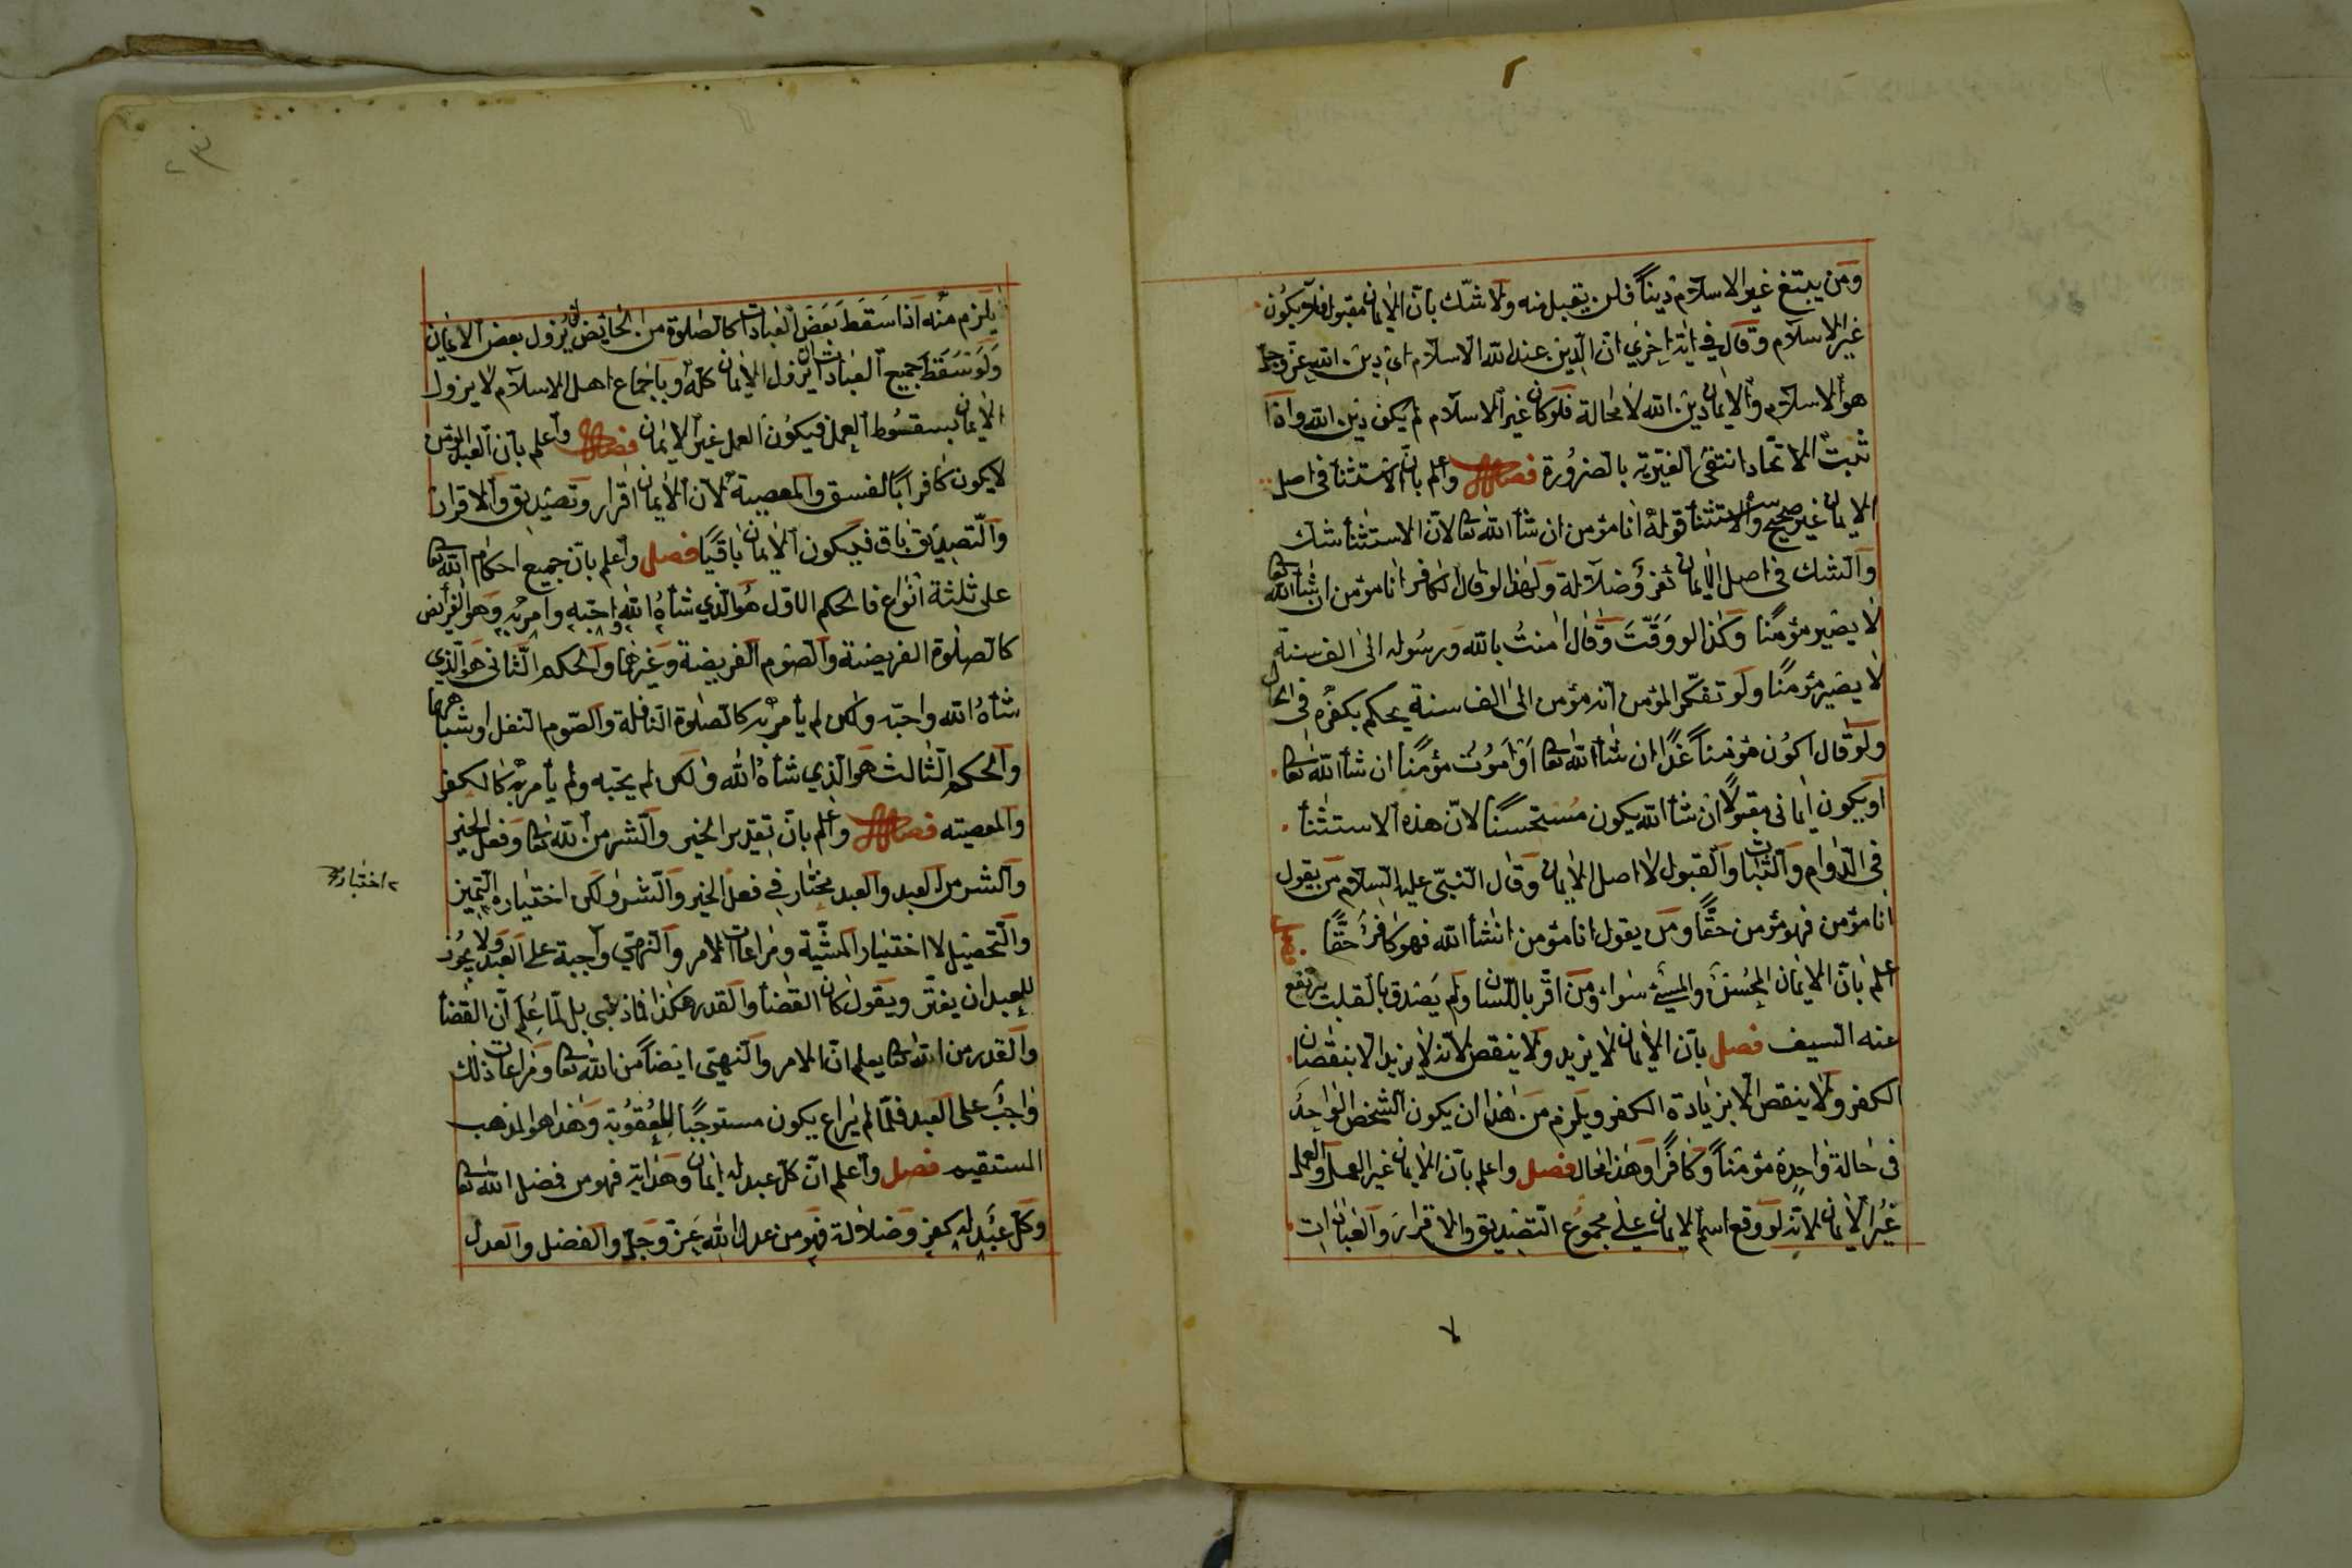 ٢
ومن يبتغ غير الاسلام دينا فلن يقبل منه ولا شك بان الايمان مقبول فلا يكون
غير الاسلام وقال في اية اخرى ان الدين عند الله الاسلام اى دين الله عز وجل
هو الاسلام والايمان دين الله لا محالة فلو كان غير الاسلام لم يكن دين الله واذا
ثبت الاتحاد انتفى الغيرية بالضرورة فصل واعلم بان الاستثنأ فى اصل
الايمان غير صحيح والاستثنأ قوله انا مؤمن ان شأ الله تعا لان الاستثنأ شك
والشك فى اصل الايمان كفر وضلالة ولهذا لو قال الكافر انا مؤمن ان شأ الله تعا
لا يصير مؤمنا وكذا لو وقت وقال امنت بالله ورسوله الى الف سنة
لا يصير مؤمنا ولو تفكر المؤمن انه مؤمن الى الف سنة يحكم بكفره فى الحال
ولو قال اكون مؤمنا غدا ان شأ الله تعا او اموت مؤمنا ان شأ الله تعا
او يكون ايمانى مقبولا ان شأ الله يكون مستحسنا لان هذه الاستثنأ
فى الدوام والثبات والقبول لا اصل الايمان وقال النبى عليه السلام من يقول
انا مؤمن فهو مؤمن حقا ومن يقول انا مؤمن انشأ الله فهو كافر حقا فصل
اعلم بان الايمان المحسن والمسئ سواء ومن اقر باللسان ولم يصدق بالقلب يرتفع
عنه السيف فصل بان الايمان لا يزيد ولا ينقص لانه لا يزيد الا بنقصان
الكفر ولا ينقص الا بزيادة الكفر ويلزم من هذا ان يكون الشخص الواحد
فى حالة واحدة مؤمنا وكافرا وهذا محال فصل واعلم بان الايمان غير العمل والعمل
غير الايمان لانه لو وقع اسم الايمان على مجموع التصديق والاقرار والعبادات
يلزم منه اذا سقط بعض العبادات كالصلوة من الحائض ان يزول بعض الايمان
ولو سقط جميع العبادات ان يزول الايمان كله وباجماع اهل الاسلام لا يزول
الايمان بسقوط العمل فيكون العمل غير الايمان فصل واعلم بان العبد المؤمن
لا يكون كافرا بالفسق والمعصية لان الايمان اقرار وتصديق والاقرار
والتصديق باق فيكون الايمان باقيا فصل واعلم بان جميع احكام الله تعا
على ثلثة انواع فالحكم الاول هو الذي شأه الله واحبه وامر به وهو الفرائض
كالصلوة الفريضة والصوم الفريضة وغيرهما والحكم الثانى هو الذي
شأه الله واحبه ولكن لم يأمر به كالصلوة النافلة والصوم النفل او شباههما
والحكم الثالث هو الذي شأه الله ولكن لم يحبه ولم يأمر به كالكفر
والمعصيته فصل واعلم بان تقدير الخير والشر من الله تعا وفعل الخير
والشر من العبد والعبد مختار في فعل الخير والشر ولكن اختياره التميز
والتحصيل لا اختيار المشية ومراعات الامر والنهي واجبة على العبد ولا يجوز
للعبد ان يغتر ويقول كان القضأ والقدر هكذا فما ذنبى بل لما علم ان القضأ
والقدر من الله تعا يعلم ان الامر والنهى ايضا من الله تعا ومراعات ذلك
واجب على العبد فلما لم يراع يكون مستوجبا للعقوبة وهذا هو المذهب
المستقيم فصل واعلم ان كل عبد له ايمان وهداية فهو من فضل الله تعا
وكل عبد له كفر وضلالة فهو من عدل الله عز وجل والفضل والعدل